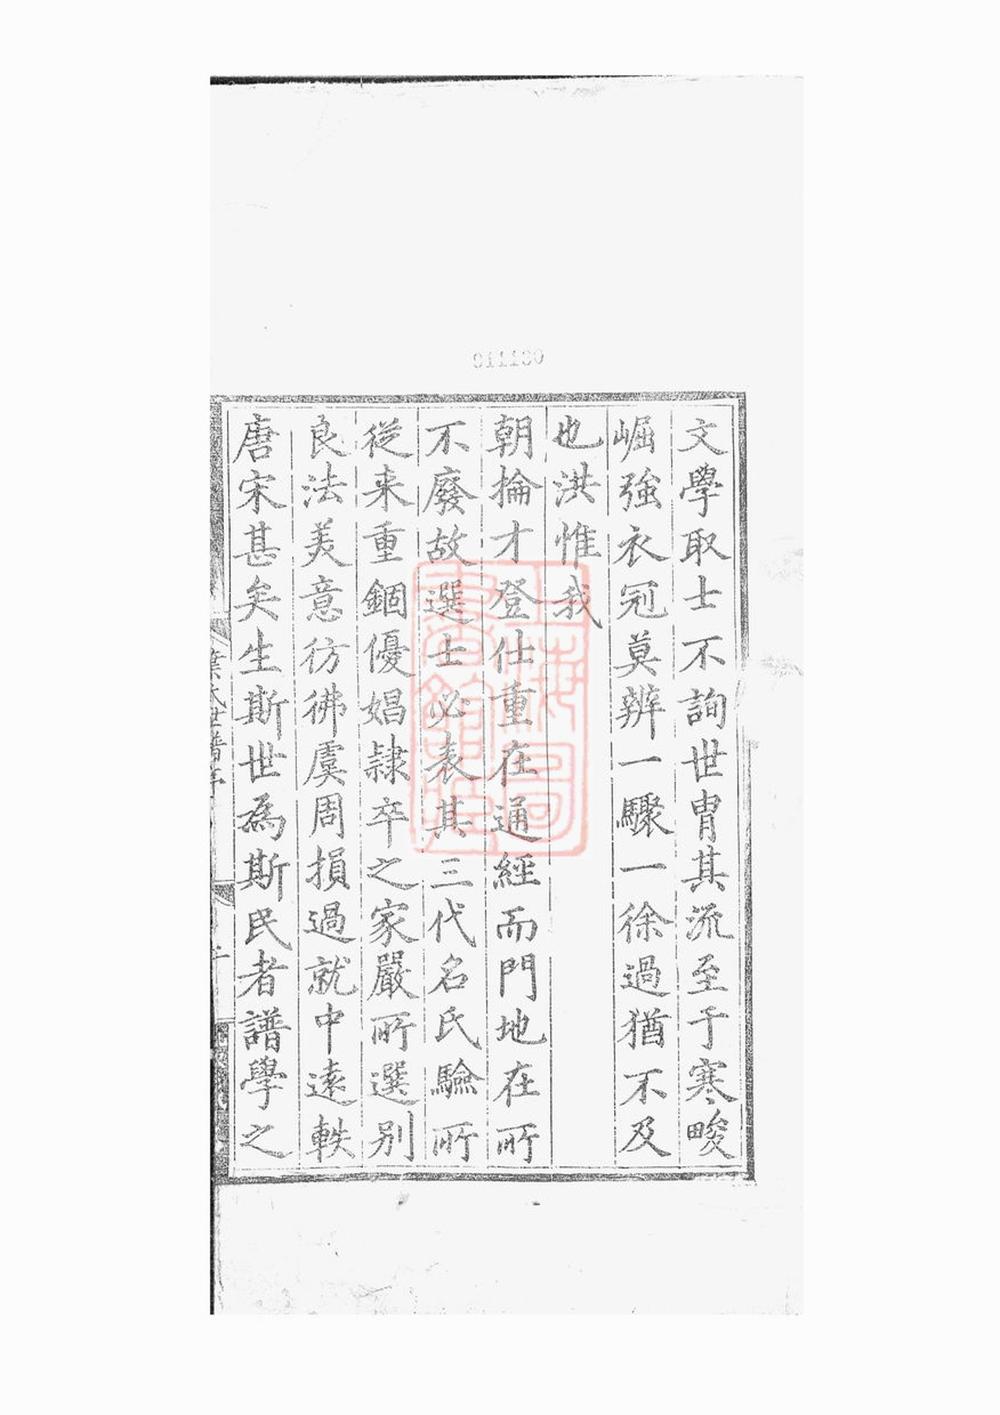 011100
文學取士不詢世胄其流至于寒畯
崛強衣冠莫辨一驟一徐過猶不及
也洪惟我
朝掄才登仕重在通經而門地在所
不廢故選士必表其三代名氏驗所
從来重錮優娼隷卒之家嚴所選别
良法美意彷彿虞周損過就中遠軼
唐宋甚矣生斯世為斯民者譜學之
葉氏世譜序
上海圖書館藏